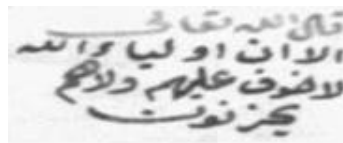 قال الله تعالى
الا ان اولياء الله
لا خوف عليهم ولا هم
يحزنون